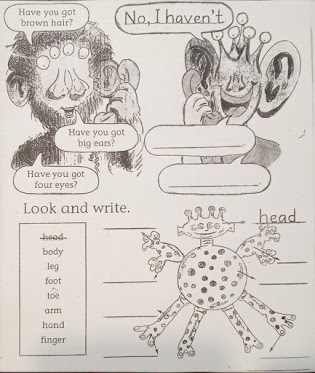 Have you got
brown hair?
No, I haven't
Have you got
big ears?
Have you got
four eyes?
Look and write.
head
head
body
leg
foot
toe
arm
hand
finger